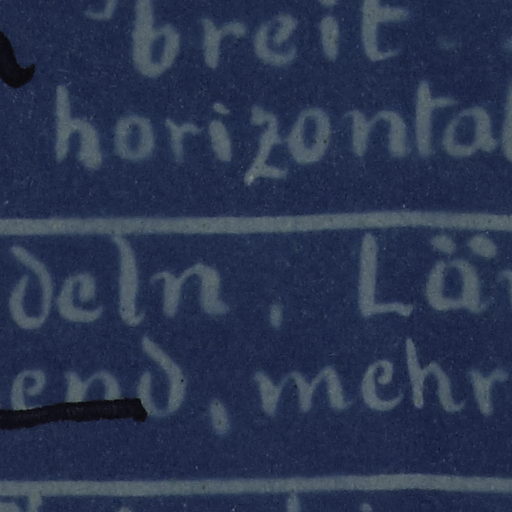 breit
horizontal
deln, Län
end, mehr